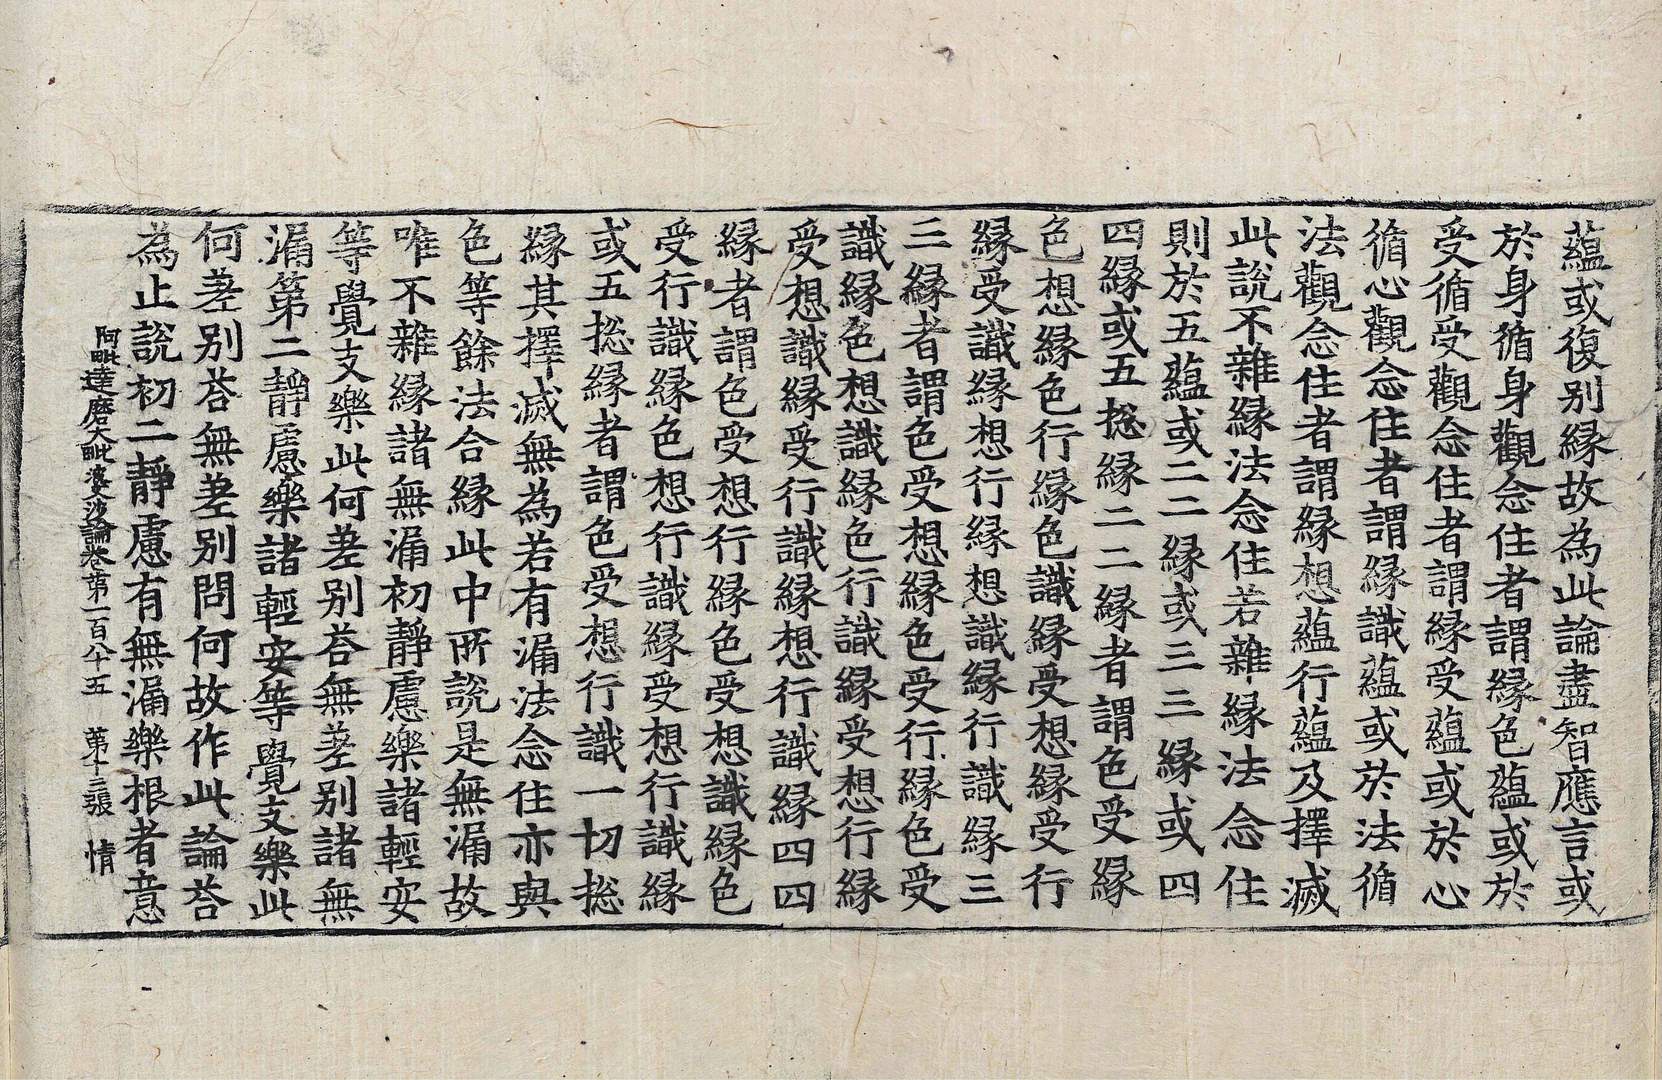 蘊或復別縁故為此論盡智應言或
於身循身觀念住者謂縁色蘊或於
受循受觀念住者謂縁受蘊或於心
循心觀念住者謂縁識蘊或於法循
法觀念住者謂縁想蘊行蘊及擇滅
此說不雜縁法念住若雜縁法念住
則於五蘊或二二縁或三三縁或四
四縁或五揔縁二二縁者謂色受縁
色想縁色行縁色識縁受想縁受行
縁受識縁想行縁想識縁行識縁三
三縁者謂色受想縁色受行縁色受
識縁色想識縁色行識縁受想行縁
受想識縁受行識縁想行識縁四四
縁者謂色受想行縁色受想識縁色
受行識縁色想行識縁受想行識縁
或五揔縁者謂色受想行識一切揔
縁其擇滅無為若有漏法念住亦與
色等餘法合縁此中所說是無漏故
唯不雜縁諸無漏初靜慮樂諸輕安
等覺支樂此何差别荅無差别諸無
漏第二靜慮樂諸輕安等覺支樂此
何差别荅無差别問何故作此論荅
為止說初二靜慮有無漏樂根者意
阿毗達磨大毗婆沙論卷第一百八十五 第十三張 情